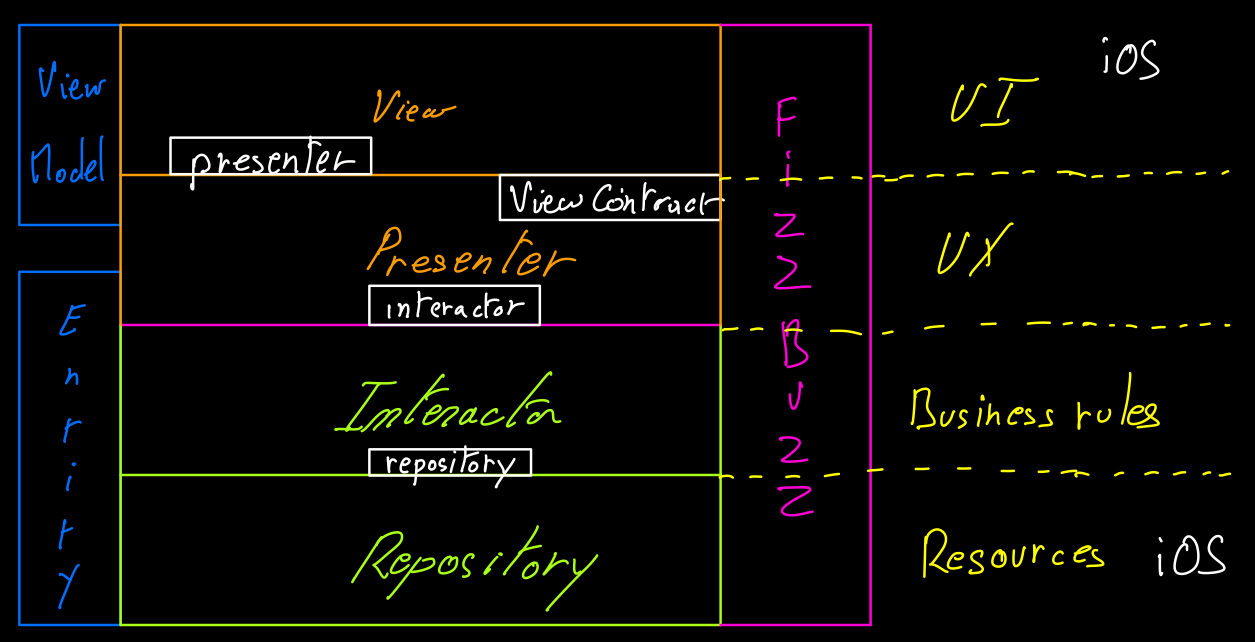 View
Model
View
presenter
View Contract
Presenter
interactor
Interactor
repository
Repository
Entity
FizzBuzz
iOS
UI
UX
Business rules
Resources iOS